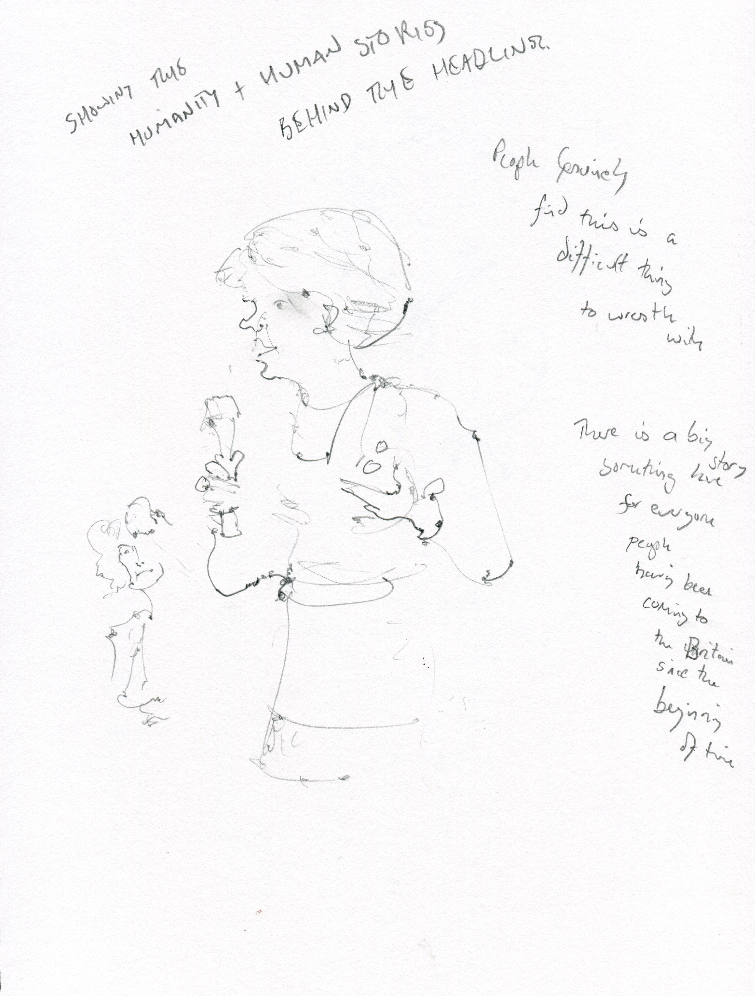 SHOWING THE
HUMANITY + HUMAN STORIES
BEHIND THE HEADLINE.
People Genuinely
find this is a
difficult thing
to wrestle
with
There is a big
story
something here
for everyone
people
having been
coming to
the Britain
since the
beginning
of time